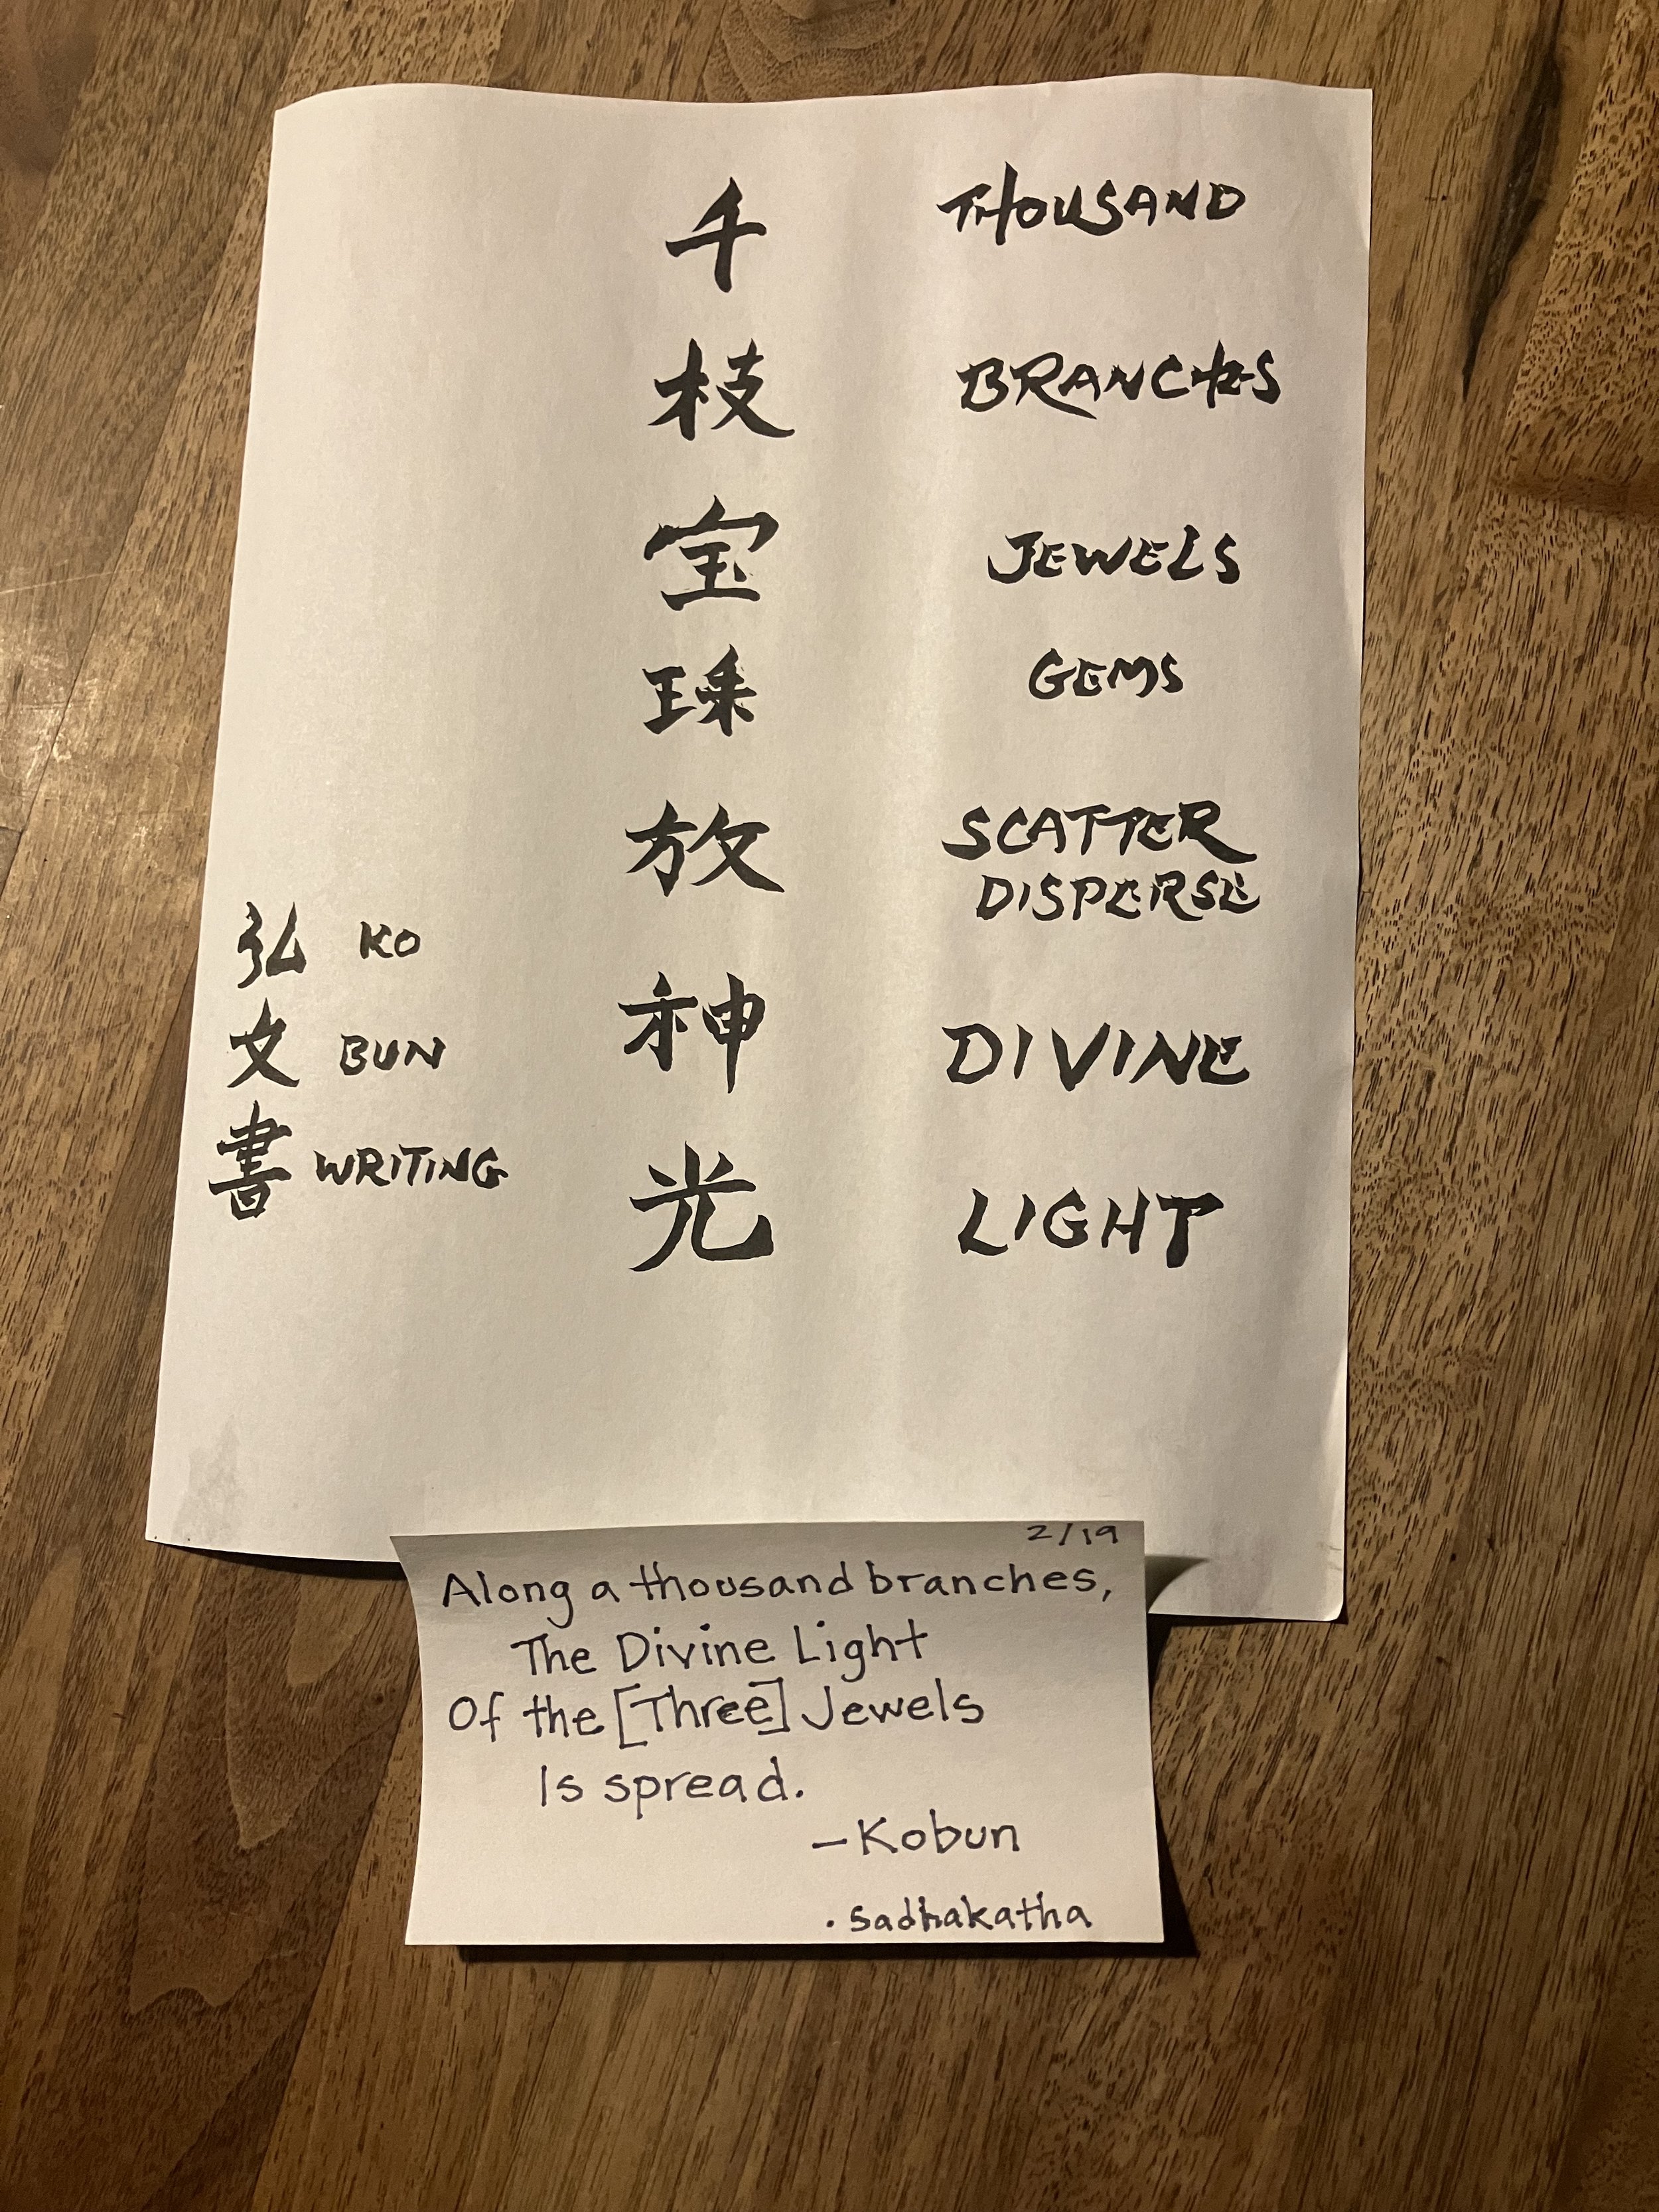 千 THOUSAND
枝 BRANCHES
宝 JEWELS
珠 GEMS
放 SCATTER
DISPERSE
神 DIVINE
光 LIGHT
弘 KO
文 BUN
書 WRITING
2/19
Along a thousand branches,
The Divine Light
Of the [Three] Jewels
Is spread.
—Kobun
·sadhakatha